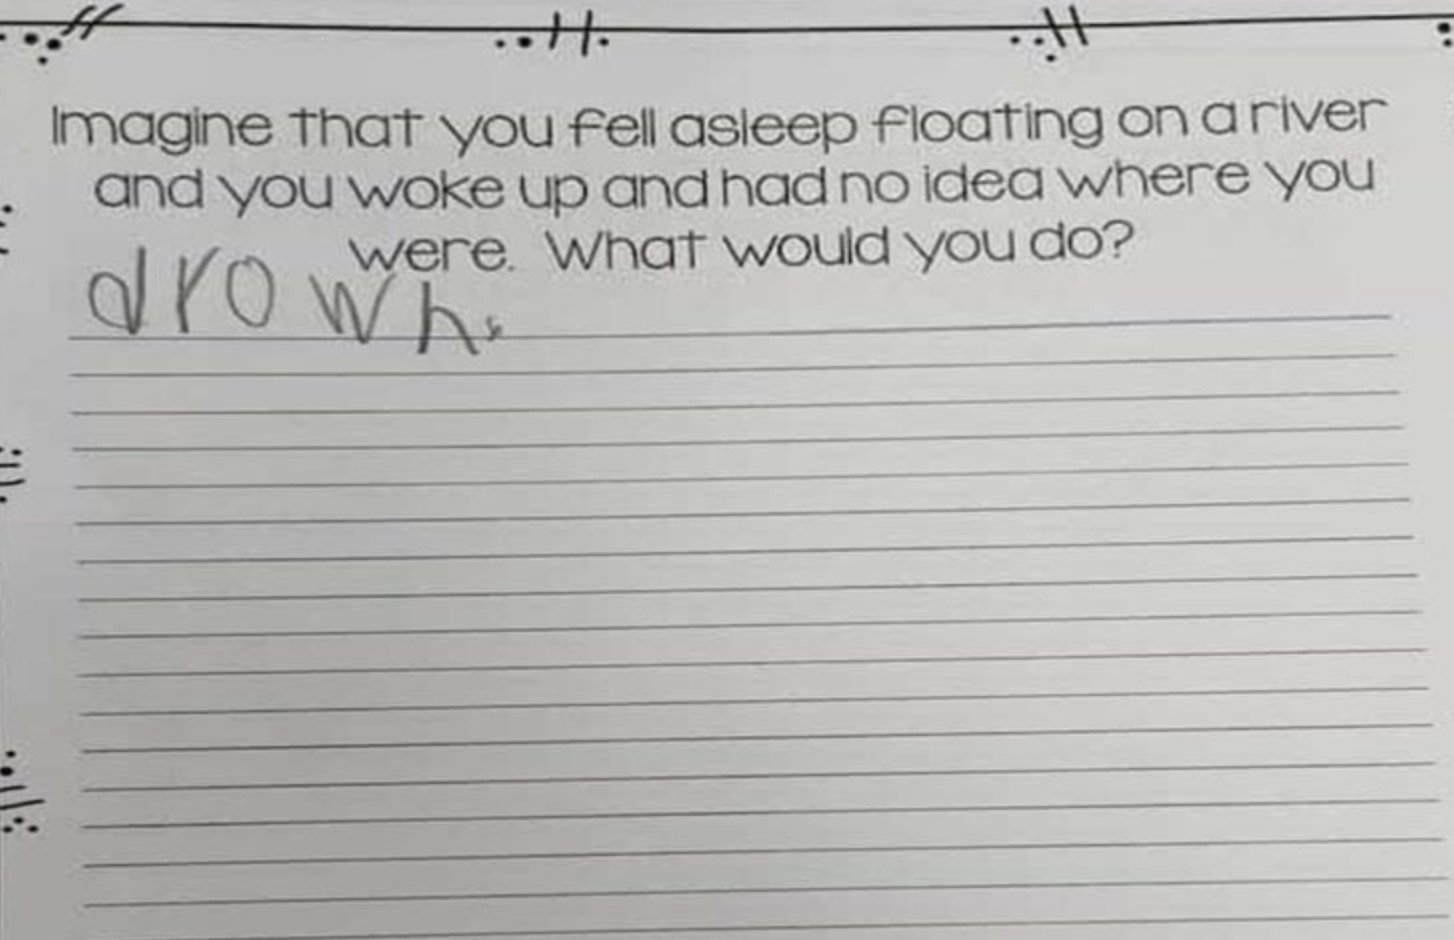 Imagine that you fell asleep floating on a river
and you woke up and had no idea where you
were. What would you do?
drown.